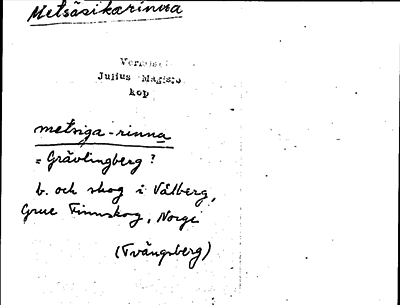 Metsäsikarinna
Julius Mägiste
kop
metsiga-rinna
= Grävlingberg ?
b. och skog i Vålberg,
Grue Finnskog, Norge
(Tvängsberg)